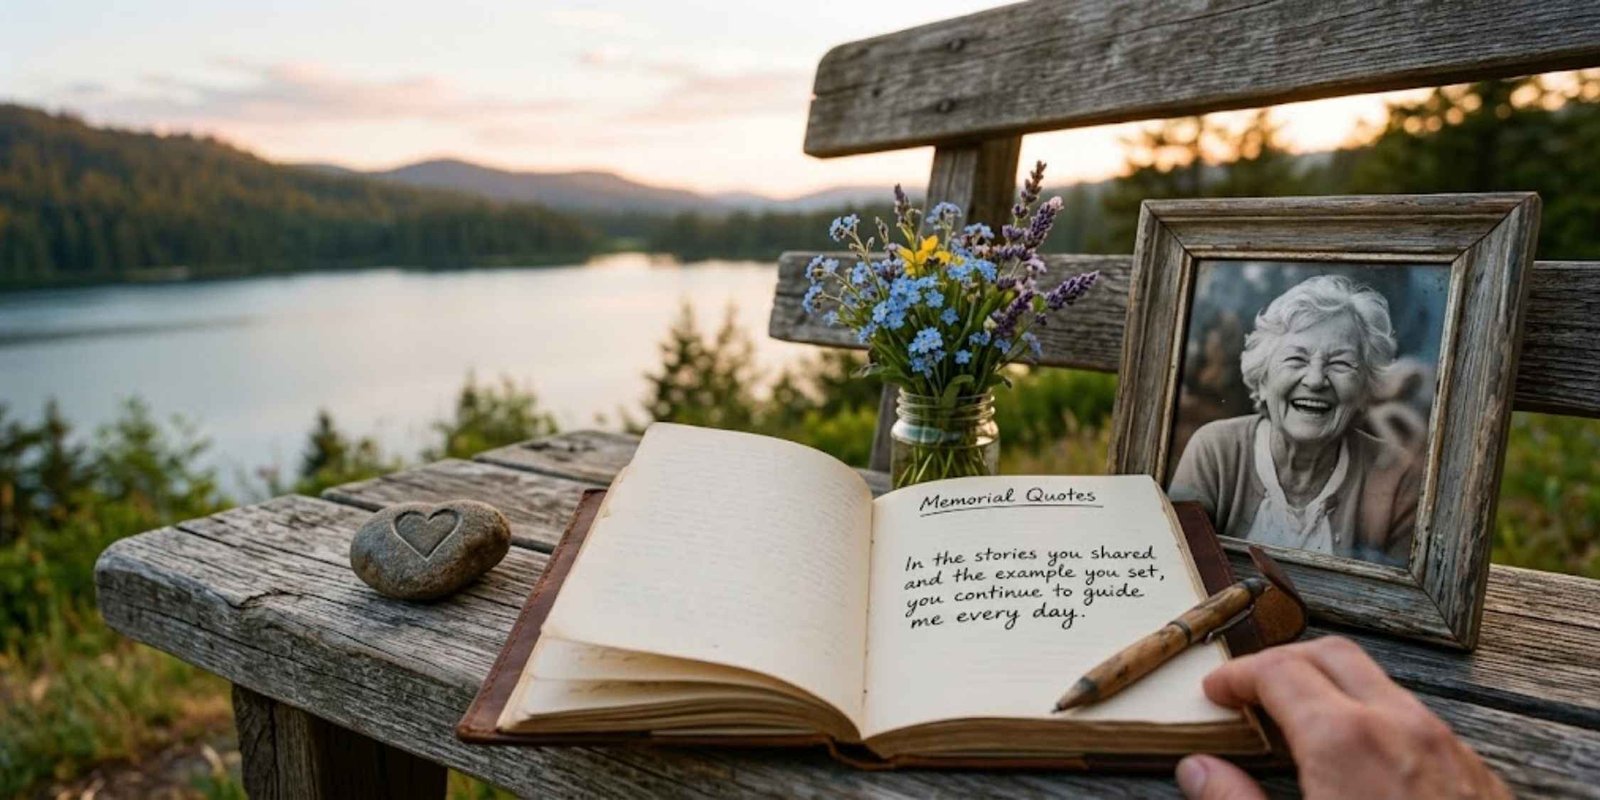 Memorial Quotes
In the stories you shared
and the example you set,
you continue to guide
me every day.